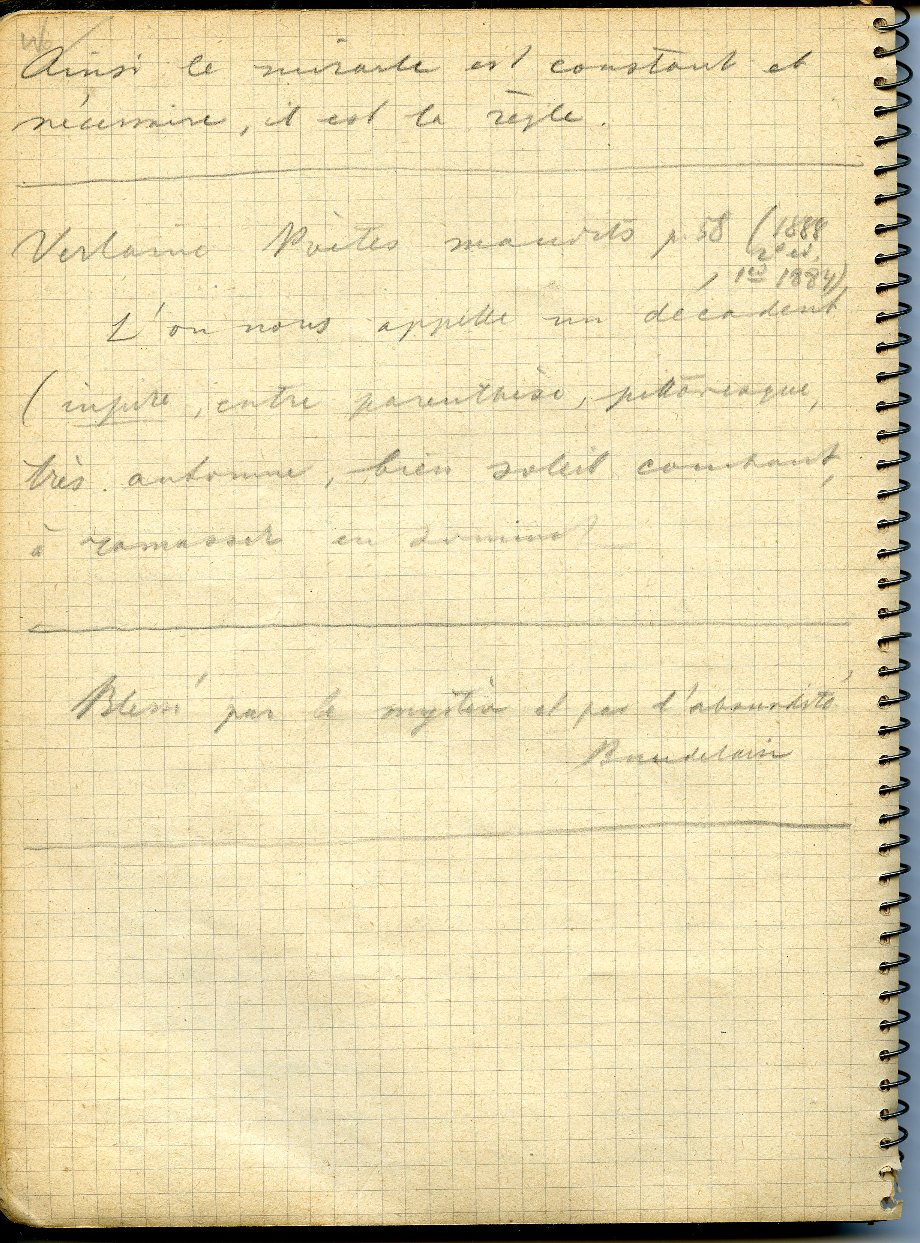 Ainsi le miracle est constant et
nécessaire, il est la règle.
Verlaine Poètes maudits p. 58 (1888
2e ed,
1re 1884)
L'on nous appelle un décadent
(injure, entre parenthèse, pittoresque,
très automne, bien soleil couchant,
à ramasser en somme)
Blessé par le mystère et par l'absurdité
Baudelaire